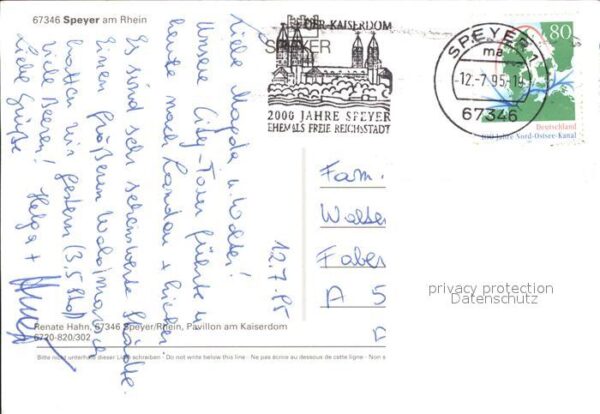 67346 Speyer am Rhein
Liebe Magda u. Walter!
Unsere City-Tour führte u
heute nach Landau + hierher.
Es sind sehr sehenswerte Städte.
Einen größeren Waldmarsch
hatten wir gestern (3,5 Std)
viele Beeren!
Liebe Grüße Helga +
12.7.95
DER KAISERDOM
SPEYER
2000 JAHRE SPEYER
EHEMALS FREIE REICHSSTADT
SPEYER 1
ma
-12.-7.95-19
67346
80
Deutschland
100 Jahre Nord-Ostsee-Kanal
Fam.
Walter
Faber
A 5
D
privacy protection
Datenschutz
Renate Hahn, 67346 Speyer/Rhein, Pavillon am Kaiserdom
6720-820/302
Bitte nicht unterhalb dieser Linie schreiben · Do not write below this line · Ne pas écrire au dessous de cette ligne · Non s